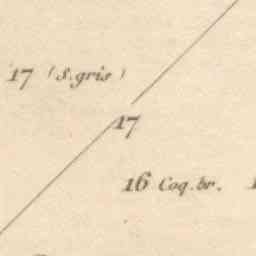 17 (S.gris)
17
16 Coq.br.